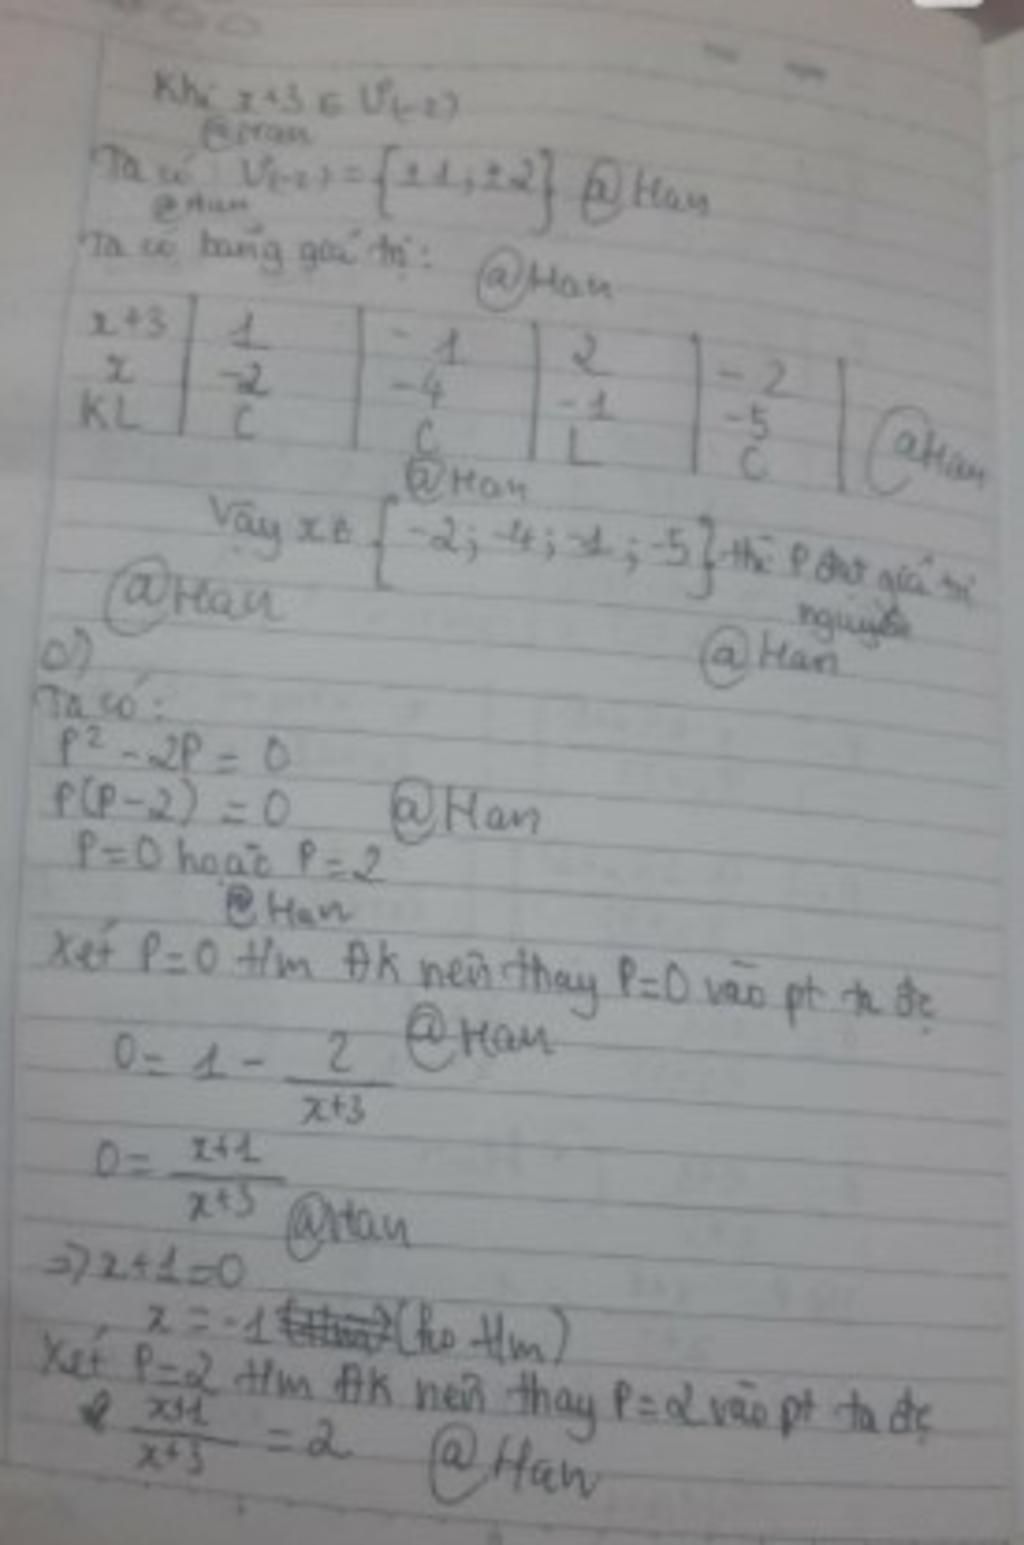 Khi x+3 ∈ Ư(-2)
@Han
Ta có Ư(-2) = {±1; ±2} @Han
@Han
Ta có bảng giá trị: @Han
x+3 | 1 | -1 | 2 | -2
x | -2 | -4 | -1 | -5
KL | C | C | L | C @Han
@Han
Vậy x ∈ {-2; -4; -1; -5} thì P đạt giá trị
nguyên
@Han
@Han
Ta có:
P² - 2P = 0
P(P-2) = 0 @Han
P=0 hoặc P=2
@Han
Xét P=0 t/m ĐK nên thay P=0 vào pt ta đc
@Han
0 = 1 - 2/(x+3)
0 = (x+1)/(x+3)
@Han
=> x+1=0
x = -1 (ko t/m)
Xét P=2 t/m ĐK nên thay P=2 vào pt ta đc
(x+1)/(x+3) = 2 @Han